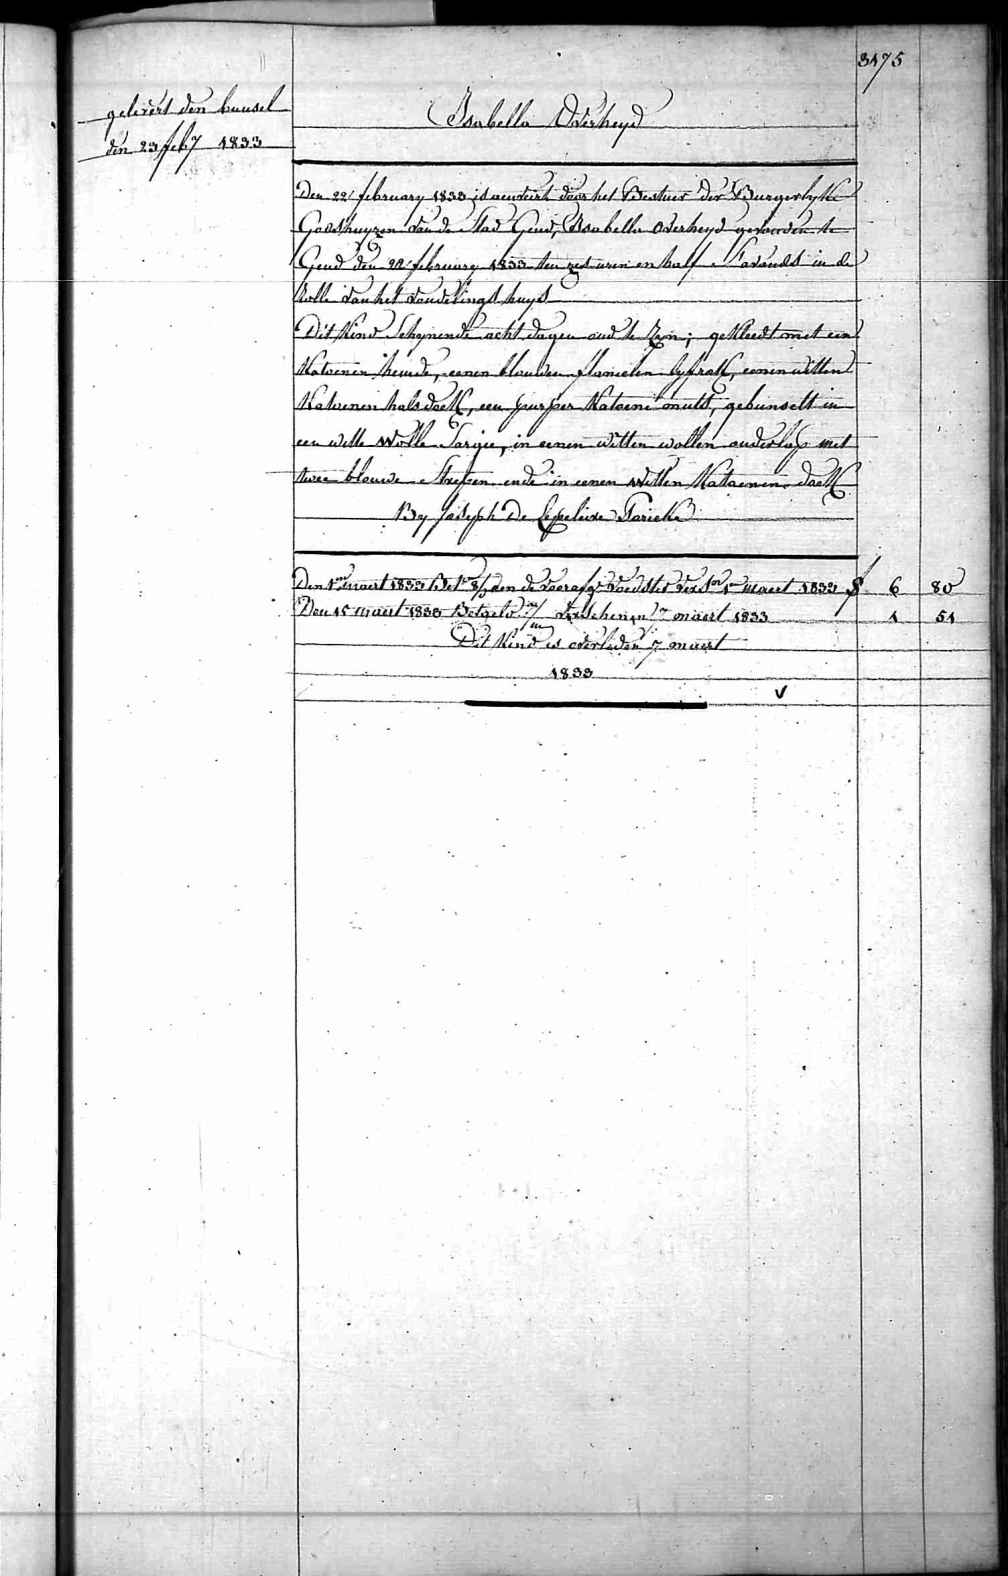 3175
gelevert den bunsel
den 23 feb7 1833
Isabella Overheyd
Den 22 february 1833 is aenveirt door het Bestuer der Burgerlyke
Godshuyzen van de Stad Gend, Isabella Overheyd gevonden te
Gend den 22 february 1833 ten zes uren en half s'avonds in de
rolle van het vondelingshuys
Dit Kind Schynende acht dagen oud te Zyn; gekleedt met een
Katoenen hemde, eenen blauwen flanelen lyfrok, eenen witten
Katoenen halsdoek, een purper Katoene muts, gebunselt in
een witte wolle Sargie, in eenen witten wollen onderlap met
twee blauwe Strepen ende in eenen witten Katoenen doek
By Joseph De Lepeleire Paricke
Den 1 maert 1833 Bet aen de voedster 1 maert 1833 f 6 80
Den 15 maert 1833 Betaelt verschenen 7 maert 1833 1 51
Dit Kind is overleden 7 maert
1833